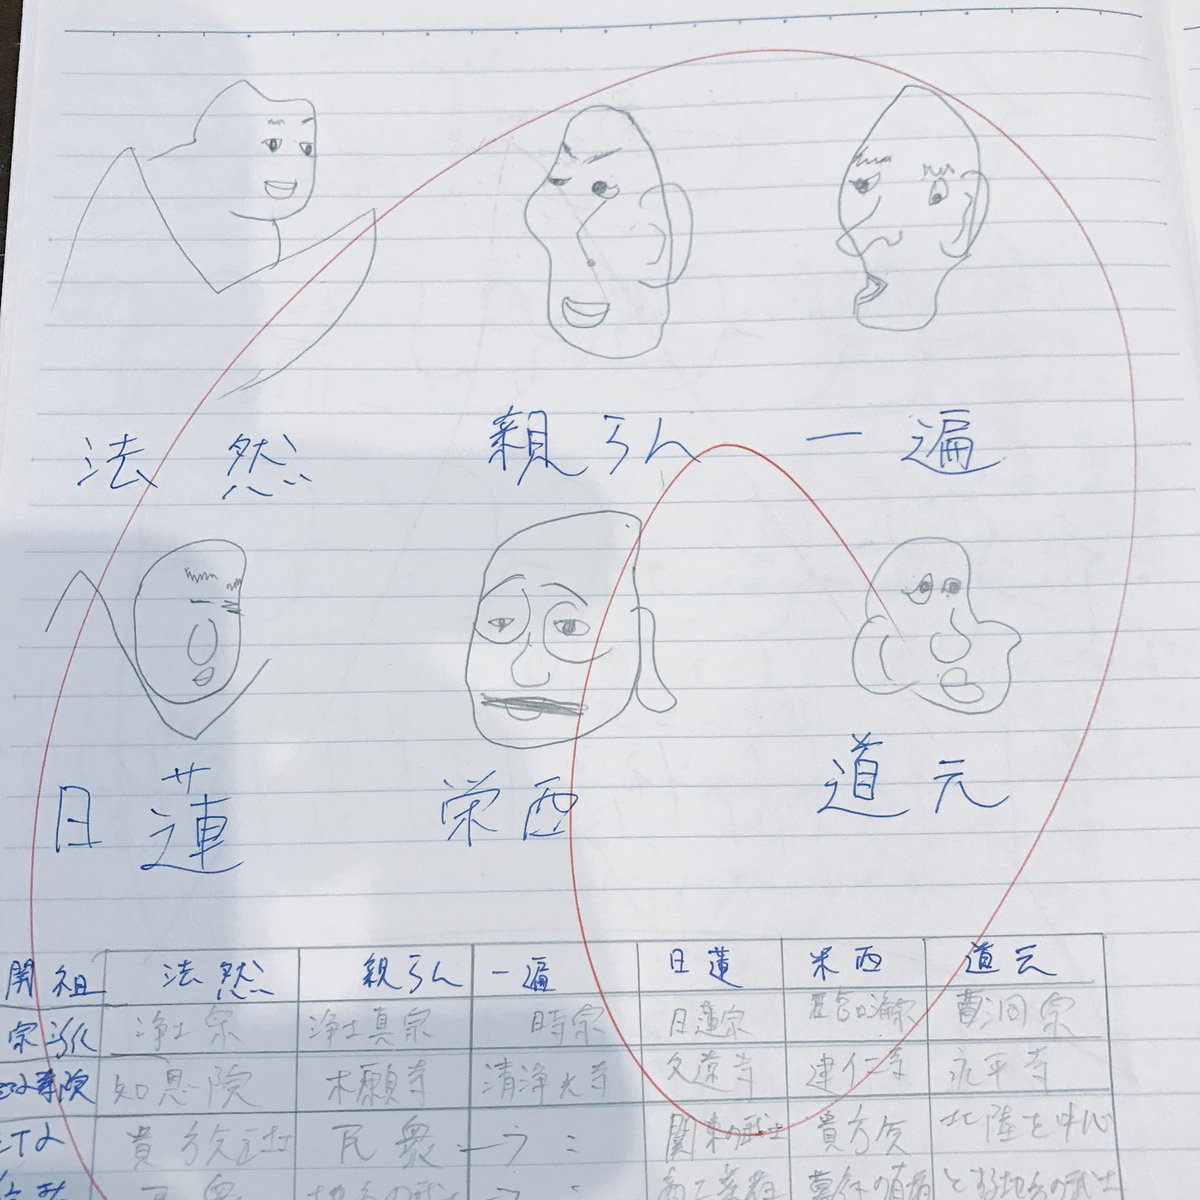 法然 親らん 一遍
日蓮 栄西 道元
開祖 法然 親らん 一遍 日蓮 栄西 道元
宗派 浄土宗 浄土真宗 時宗 日蓮宗 曹洞宗
寺院 知恩院 本願寺 清浄光寺 久遠寺 建仁寺 永平寺
民衆 → : 関東の武士 北陸を中心